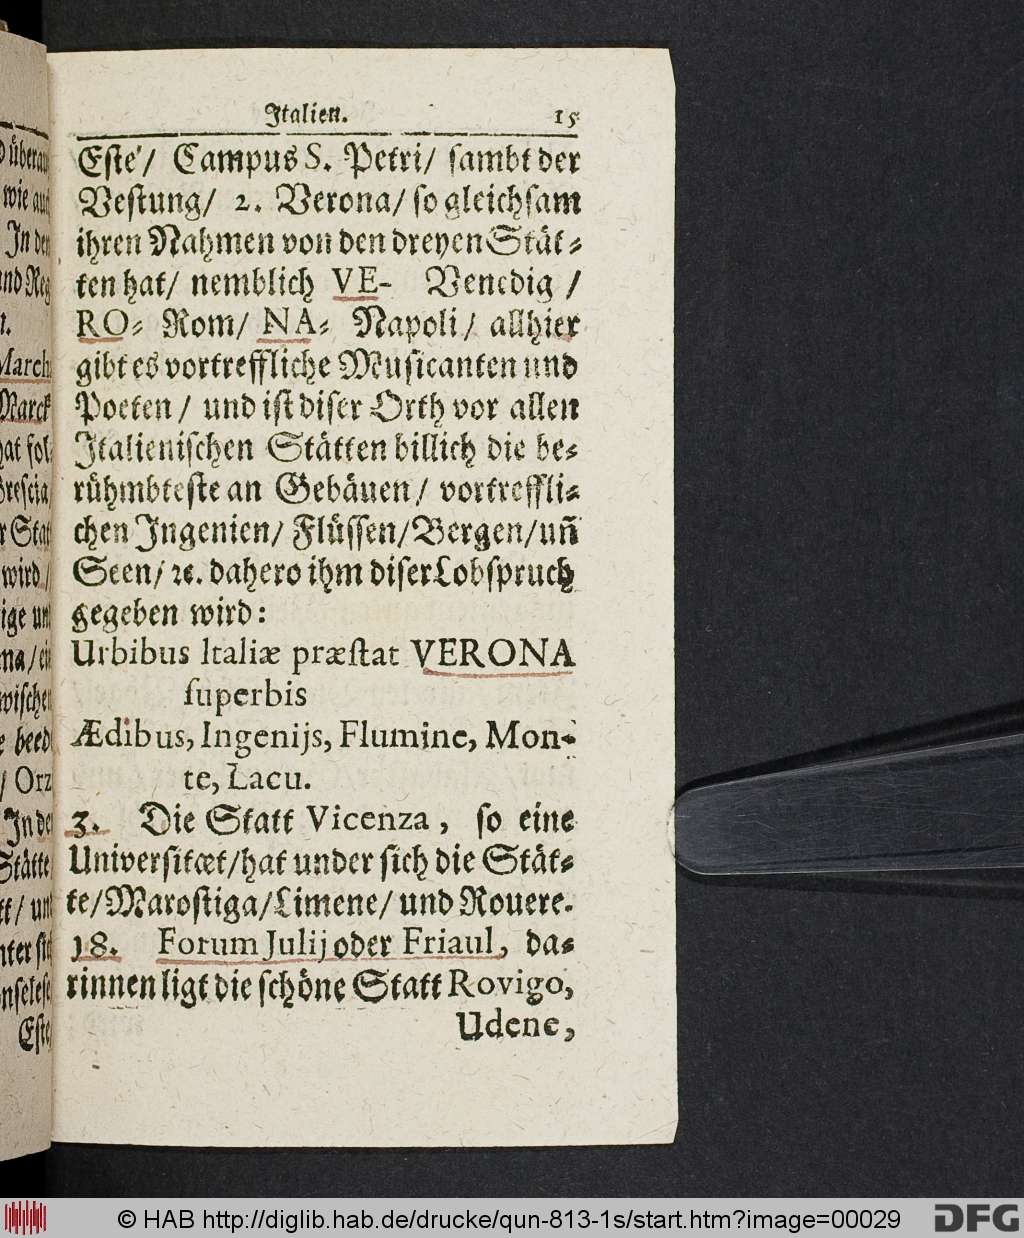 Italien. 15
Este/ Campus S. Petri/ sambt der
Vestung/ 2. Verona/ so gleichsam
ihren Nahmen von den dreyen Stät-
ten hat/ nemblich VE- Venedig /
RO- Rom/ NA- Napoli/ allhier
gibt es vortreffliche Musicanten und
Poeten / und ist diser Orth vor allen
Italienischen Stätten billich die be-
rühmbteste an Gebäuen/ vortreffli-
chen Ingenien/ Flüssen/ Bergen/ uñ
Seen/ ꝛc. dahero ihm diser Lobspruch
gegeben wird:
Urbibus Italiæ præstat VERONA
superbis
Ædibus, Ingenijs, Flumine, Mon-
te, Lacu.
3. Die Statt Vicenza, so eine
Universitæt/ hat under sich die Stät-
te/ Marostiga/ Limene/ und Rouere.
18. Forum Julij oder Friaul, da-
rinnen ligt die schöne Statt Rovigo,
Udene,
überau
wie auch
In der
und Reg
March
Marck
hat fol-
Brescia
r Stat
wird/
ige un
na/ ei
wischen
e beed
/ Orz
In de
Stätte
tt/ un
nter sich
nselese
Este
© HAB http://diglib.hab.de/drucke/qun-813-1s/start.htm?image=00029
DFG